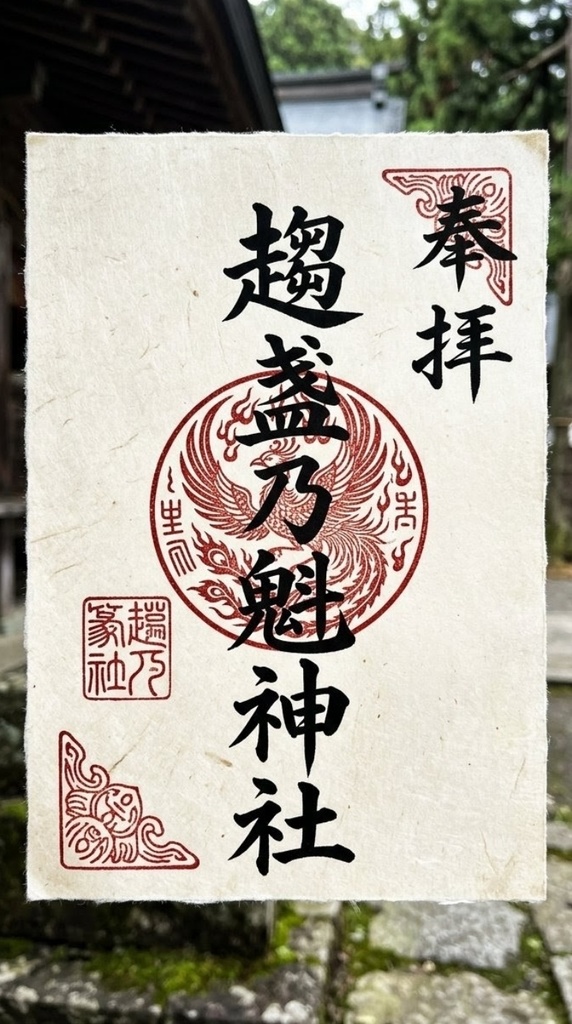 奉拝
趨盏乃魁神社
趨乃
篆社